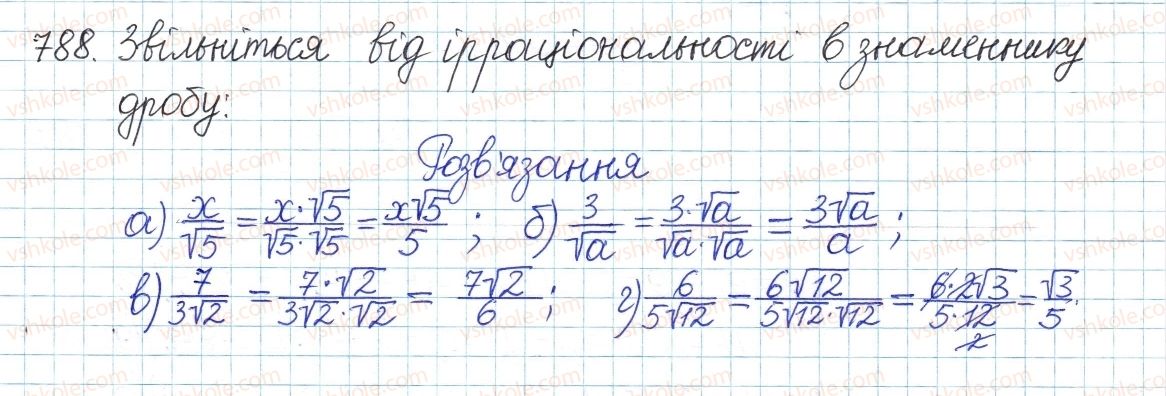 788. Звільніться від ірраціональності в знаменнику
дробу:
Розв'язання
а) x/√5 = x·√5/√5·√5 = x√5/5 ; б) 3/√a = 3·√a/√a·√a = 3√a/a ;
в) 7/3√2 = 7·√2/3√2·√2 = 7√2/6 ; г) 6/5√12 = 6√12/5√12·√12 = 6·2√3/5·12 2 = √3/5.